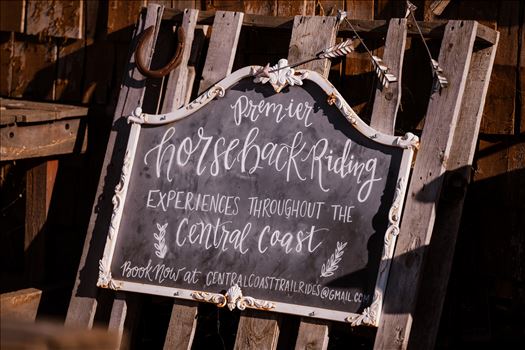 Premier
horseback Riding
EXPERIENCES THROUGHOUT THE
Central Coast
Book Now at CENTRALCOASTTRAILRIDES@GMAIL.COM